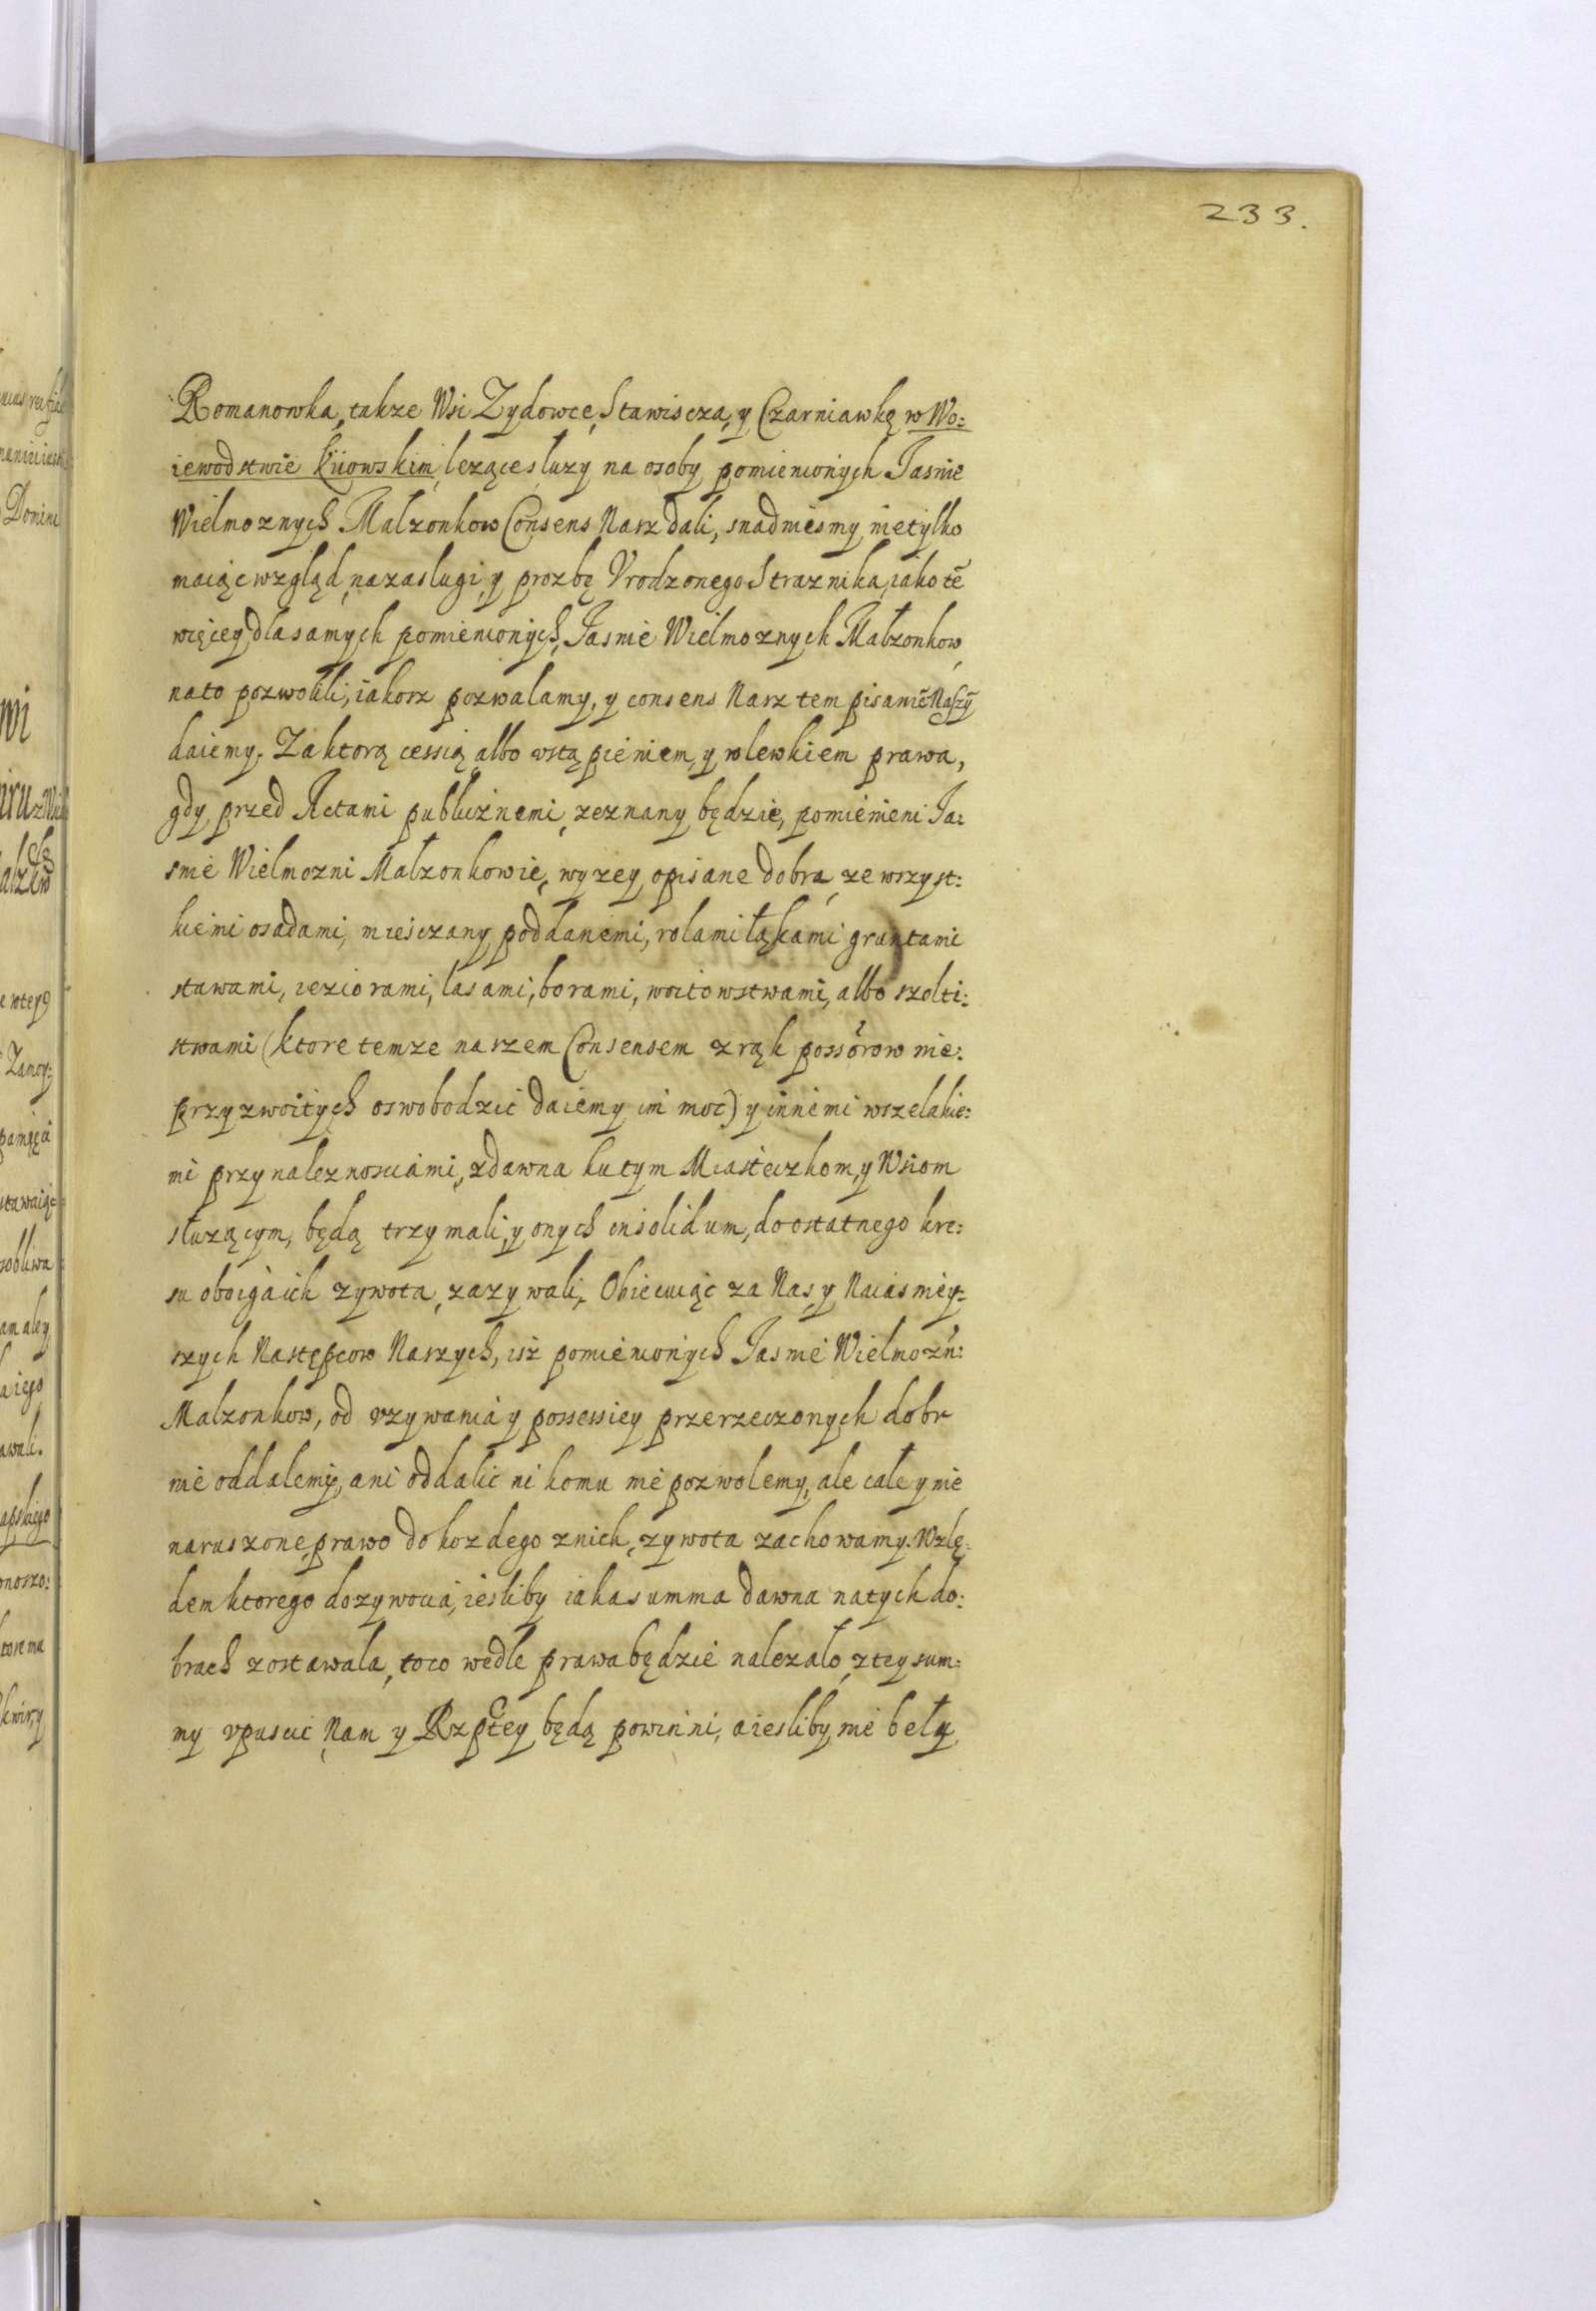 233.
Romanowka, takze Wsi Zydowce, Stawiscza, y Czarniawkę w Wo:
iewodstwie kiiowskim, lezące sluzy na osoby pomienionych Jasnie
Wielmoznych Malzonkow Consens Nasz dali, snadniesmy nietylko
maiąc wzgląd, na zaslugi, y prozbę Vrodzonego Straznika, iako tē
więcey dla samych pomienionych, Jasnie Wielmoznych Małzonkow
na to pozwolili, iakosz pozwalamy, y consens Nasz tem pisaniē Naszȳ
daiemy. Za ktorą cessią albo vstąpieniem, y wlewkiem prawa,
gdy przed Actami publicznemi, zeznany będzie, pomienieni Ja:
snie Wielmozni Małzonkowie, wyzey opisane dobra, ze wszyst:
kiemi osadami, miesczany, poddanemi, rolami łąkami gruntami
stawami, ieziorami, lasami, borami, woitowstwami, albo szolti:
stwami (ktore temze naszem Consensem z rąk possorow nie:
przyzwoitych oswobodzic daiemy im moc) y innemi wszelakie:
mi przynaleznosciami, zdawna ku tym Miasteczkom, y Wsiom
słuzącym, będą trzymali, y onych insolidum, do ostatnego kre:
su oboiga ich zywota, zazywali. Obiecuiąc za Nas, y Naiasniey:
szych Następcow Naszych, isz pomienionych Jasnie Wielmozń:
Malzonkow, od vzywania y possessiey przerzeczonych dobr
nie oddalemy, ani oddalic nikomu nie pozwolemy, ale cale y nie
naruszone, prawo do kozdego znich, zywota zachowamy. Wzlę:
dem ktorego dozywocia, iesliby iaka summa dawna na tych do:
brach zostawala, to co wedle prawa będzie nalezalo, z tey sum:
my vpuscic Nam y Rzpltey będą powinni, a iesliby nie beły